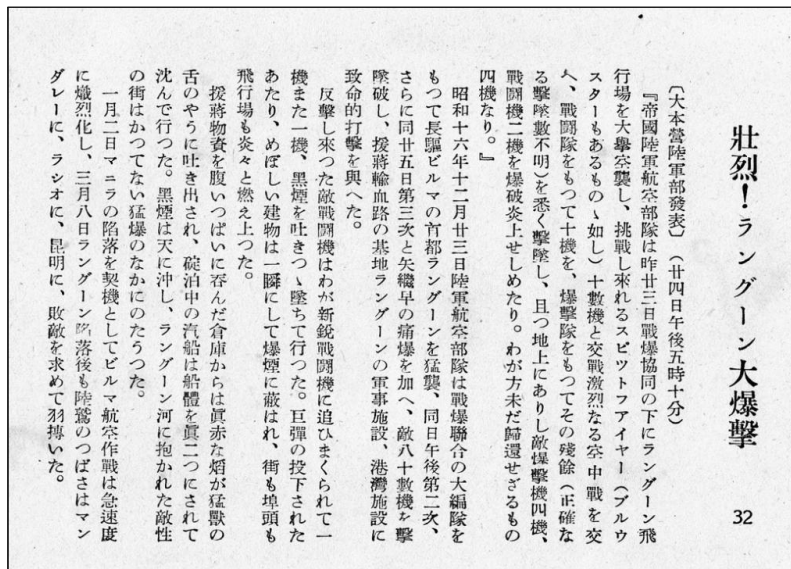 壯烈！ラングーン大爆擊
32
〔大本營陸軍部發表〕（廿四日午後五時十分）
『帝國陸軍航空部隊は昨廿三日戰爆協同の下にラングーン飛
行場を大擧空襲し、挑戰し來れるスピツトフアイヤー（ブルウ
スターもあるものゝ如し）十數機と交戰激烈なる空中戰を交
へ、戰鬪隊をもつて十機を、爆擊隊をもつてその殘餘（正確な
る擊墜數不明）を悉く擊墜し、且つ地上にありし敵爆擊機四機、
戰鬪機二機を爆破炎上せしめたり。わが方未だ歸還せざるもの
四機なり。』
昭和十六年十二月廿三日陸軍航空部隊は戰爆聯合の大編隊を
もつて長驅ビルマの首都ラングーンを猛襲、同日午後第二次、
さらに同廿五日第三次と矢繼早の痛爆を加へ、敵八十數機を擊
墜破し、援蔣輸血路の基地ラングーンの軍事施設、港灣施設に
致命的打擊を與へた。
反擊し來つた敵戰鬪機はわが新銳戰鬪機に追ひまくられて一
機また一機、黑煙を吐きつゝ墜ちて行つた。巨彈の投下された
あたり、めぼしい建物は一瞬にして爆煙に蔽はれ、街も埠頭も
飛行場も炎々と燃え上つた。
援蔣物資を腹いつぱいに呑んだ倉庫からは眞赤な焰が猛獸の
舌のやうに吐き出され、碇泊中の汽船は船體を眞二つにされて
沈んで行つた。黑煙は天に沖し、ラングーン河に抱かれた敵性
の街はかつてない猛爆のなかにのたうつた。
一月二日マニラの陷落を契機としてビルマ航空作戰は急速度
に熾烈化し、三月八日ラングーン陷落後も陸鷲のつばさはマン
ダレーに、ラシオに、昆明に、敗敵を求めて羽搏いた。